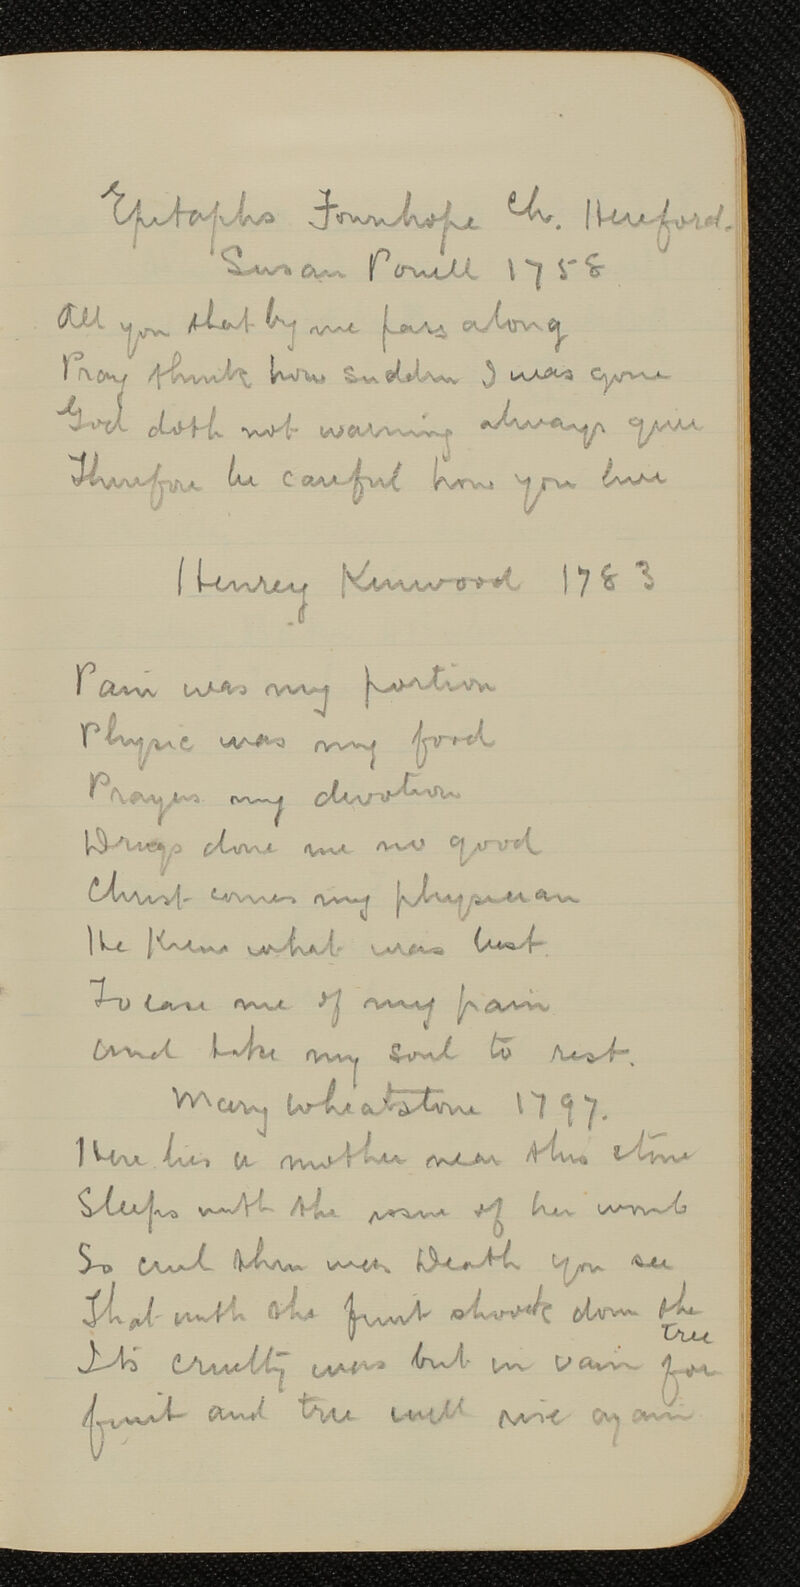 Epitaphs Fownhope Ch. Hereford.
Susan Powell 1758
All you that by me pass along
Pray think how sudden I was gone
God doth not warning always give
Therefore be careful how you live
Henrey Kenwood 1783
Pain was my portion
Physic was my food
Prayers my devotion
Drugs done me no good
Christ comes my physician
He Knew what was best
To ease me of my pain
and take my soul to rest.
Mary Wheatstone 1797.
Here lies a mother near this stone
Sleeps with the issue of her womb
So cruel then was Death you see
That with the fruit shook down the
tree
Its cruelty was but in vain for
fruit and tree will rise again